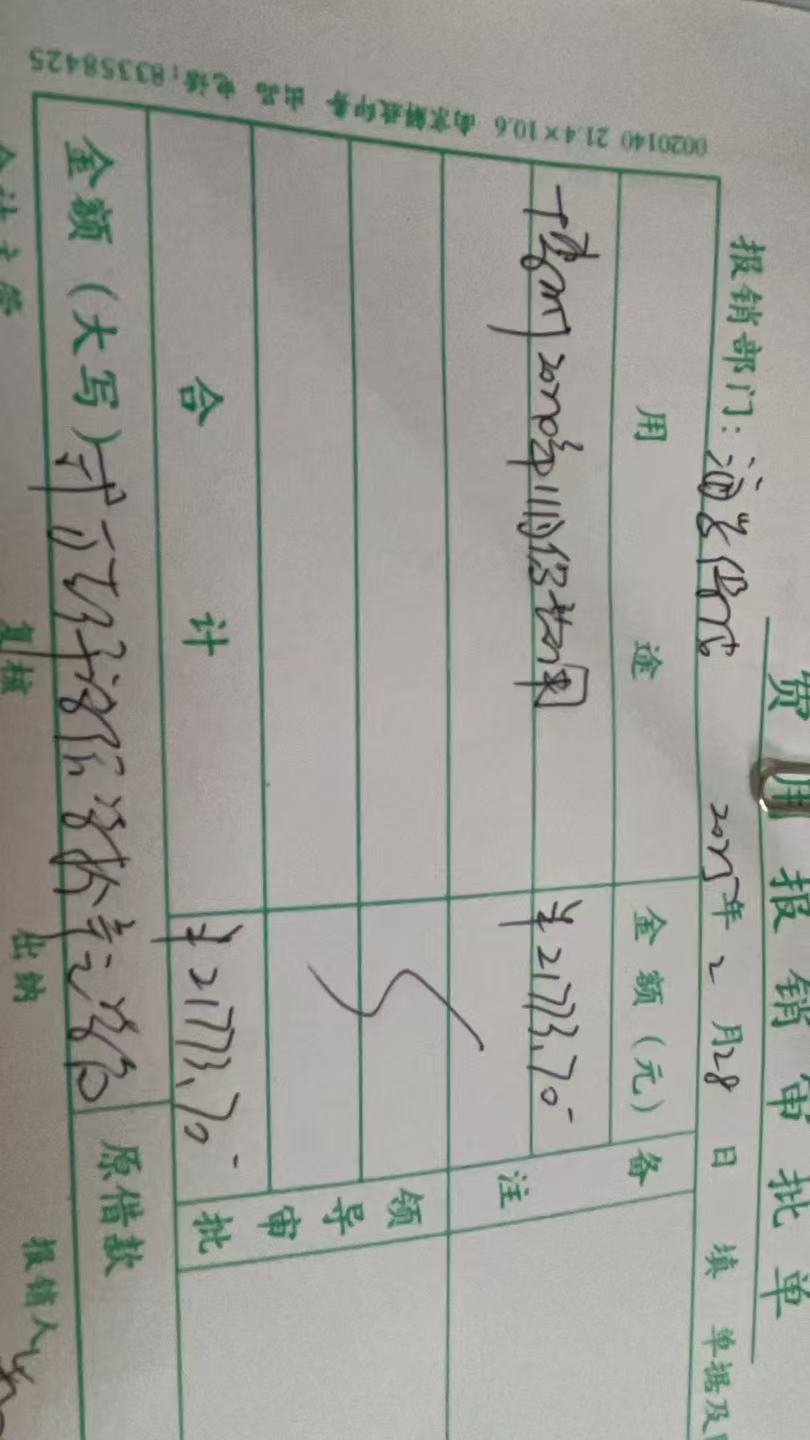 费用报销审批单
报销部门: 2025年2月28日填 单据及
用途 金额(元) 备注
¥21773.70
领导审批
合计 ¥21773.70
金额(大写) 贰万壹仟柒佰柒拾叁元柒角 原借款
会计主管 复核 出纳 报销人
0020140 21.4×10.6 南京解放印务 出品 电话:83358425